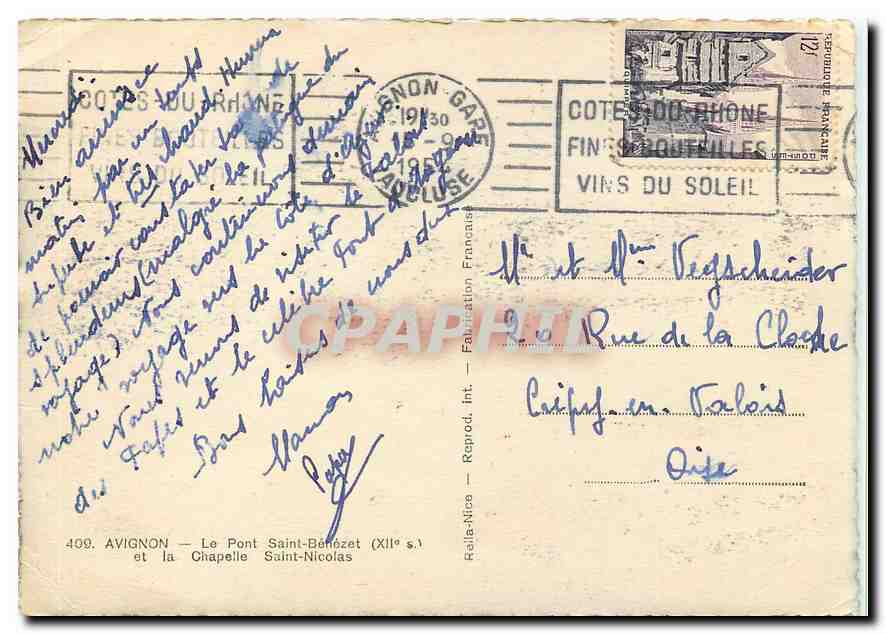 Mercredi
Bien arrivés ce
matin, par un temps
superbe et très chaud. Heureux
de pouvoir constater tant de
splendeurs (malgré la fatigue du
voyage) Nous continuerons demain
notre voyage sur la Côte d'Azur.
Nous venons de visiter le Palais
des Papes et le célèbre Pont d'Avignon
Bons baisers de nous deux
Maman
Papa
409. AVIGNON — Le Pont Saint-Bénézet (XIIe s.)
et la Chapelle Saint-Nicolas
Rella-Nice — Reprod. int. — Fabrication Française
COTES DU RHONE
FINES BOUTEILLES
VINS DU SOLEIL
AVIGNON GARE
VAUCLUSE
COTES DU RHONE
FINES BOUTEILLES
VINS DU SOLEIL
RÉPUBLIQUE FRANÇAISE
12f
QUIMPER
Mr et Mme
20 Rue de la Cloche
Crépy-en-Valois
Oise
CPAPHIL